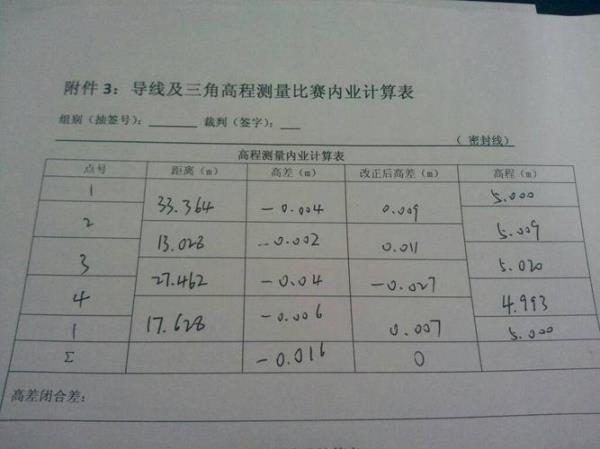 附件 3：导线及三角高程测量比赛内业计算表
组别（抽签号）：______ 裁判（签字）：___
（ 密封线）
高程测量内业计算表
点号 距离（m） 高差（m） 改正后高差（m） 高程（m）
1 5.000
33.364 -0.004 0.009
2 5.009
13.028 -0.002 0.011
3 5.020
27.462 -0.04 -0.027
4 4.993
17.628 -0.006 0.007
1 5.000
Σ -0.016 0
高差闭合差：